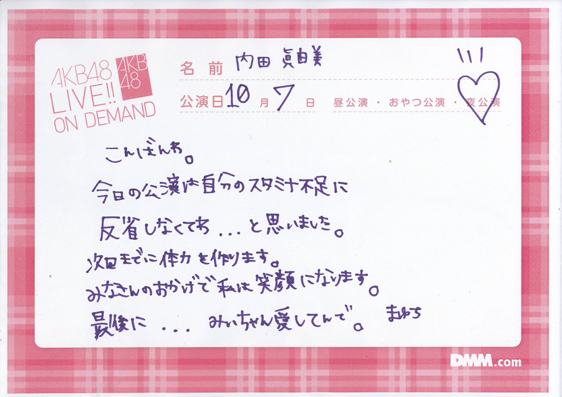 AKB48
LIVE!!
ON DEMAND
AKB
48
名前 内田 眞由美
公演日 10月7日 昼公演・おやつ公演・夜公演
こんばんわ。
今日の公演は自分のスタミナ不足に
反省しなくてわ...と思いました。
次回までに体力を作ります。
みなさんのおかげで私は笑顔になります。
最後に... みぃちゃん愛してんで。
DMM.com